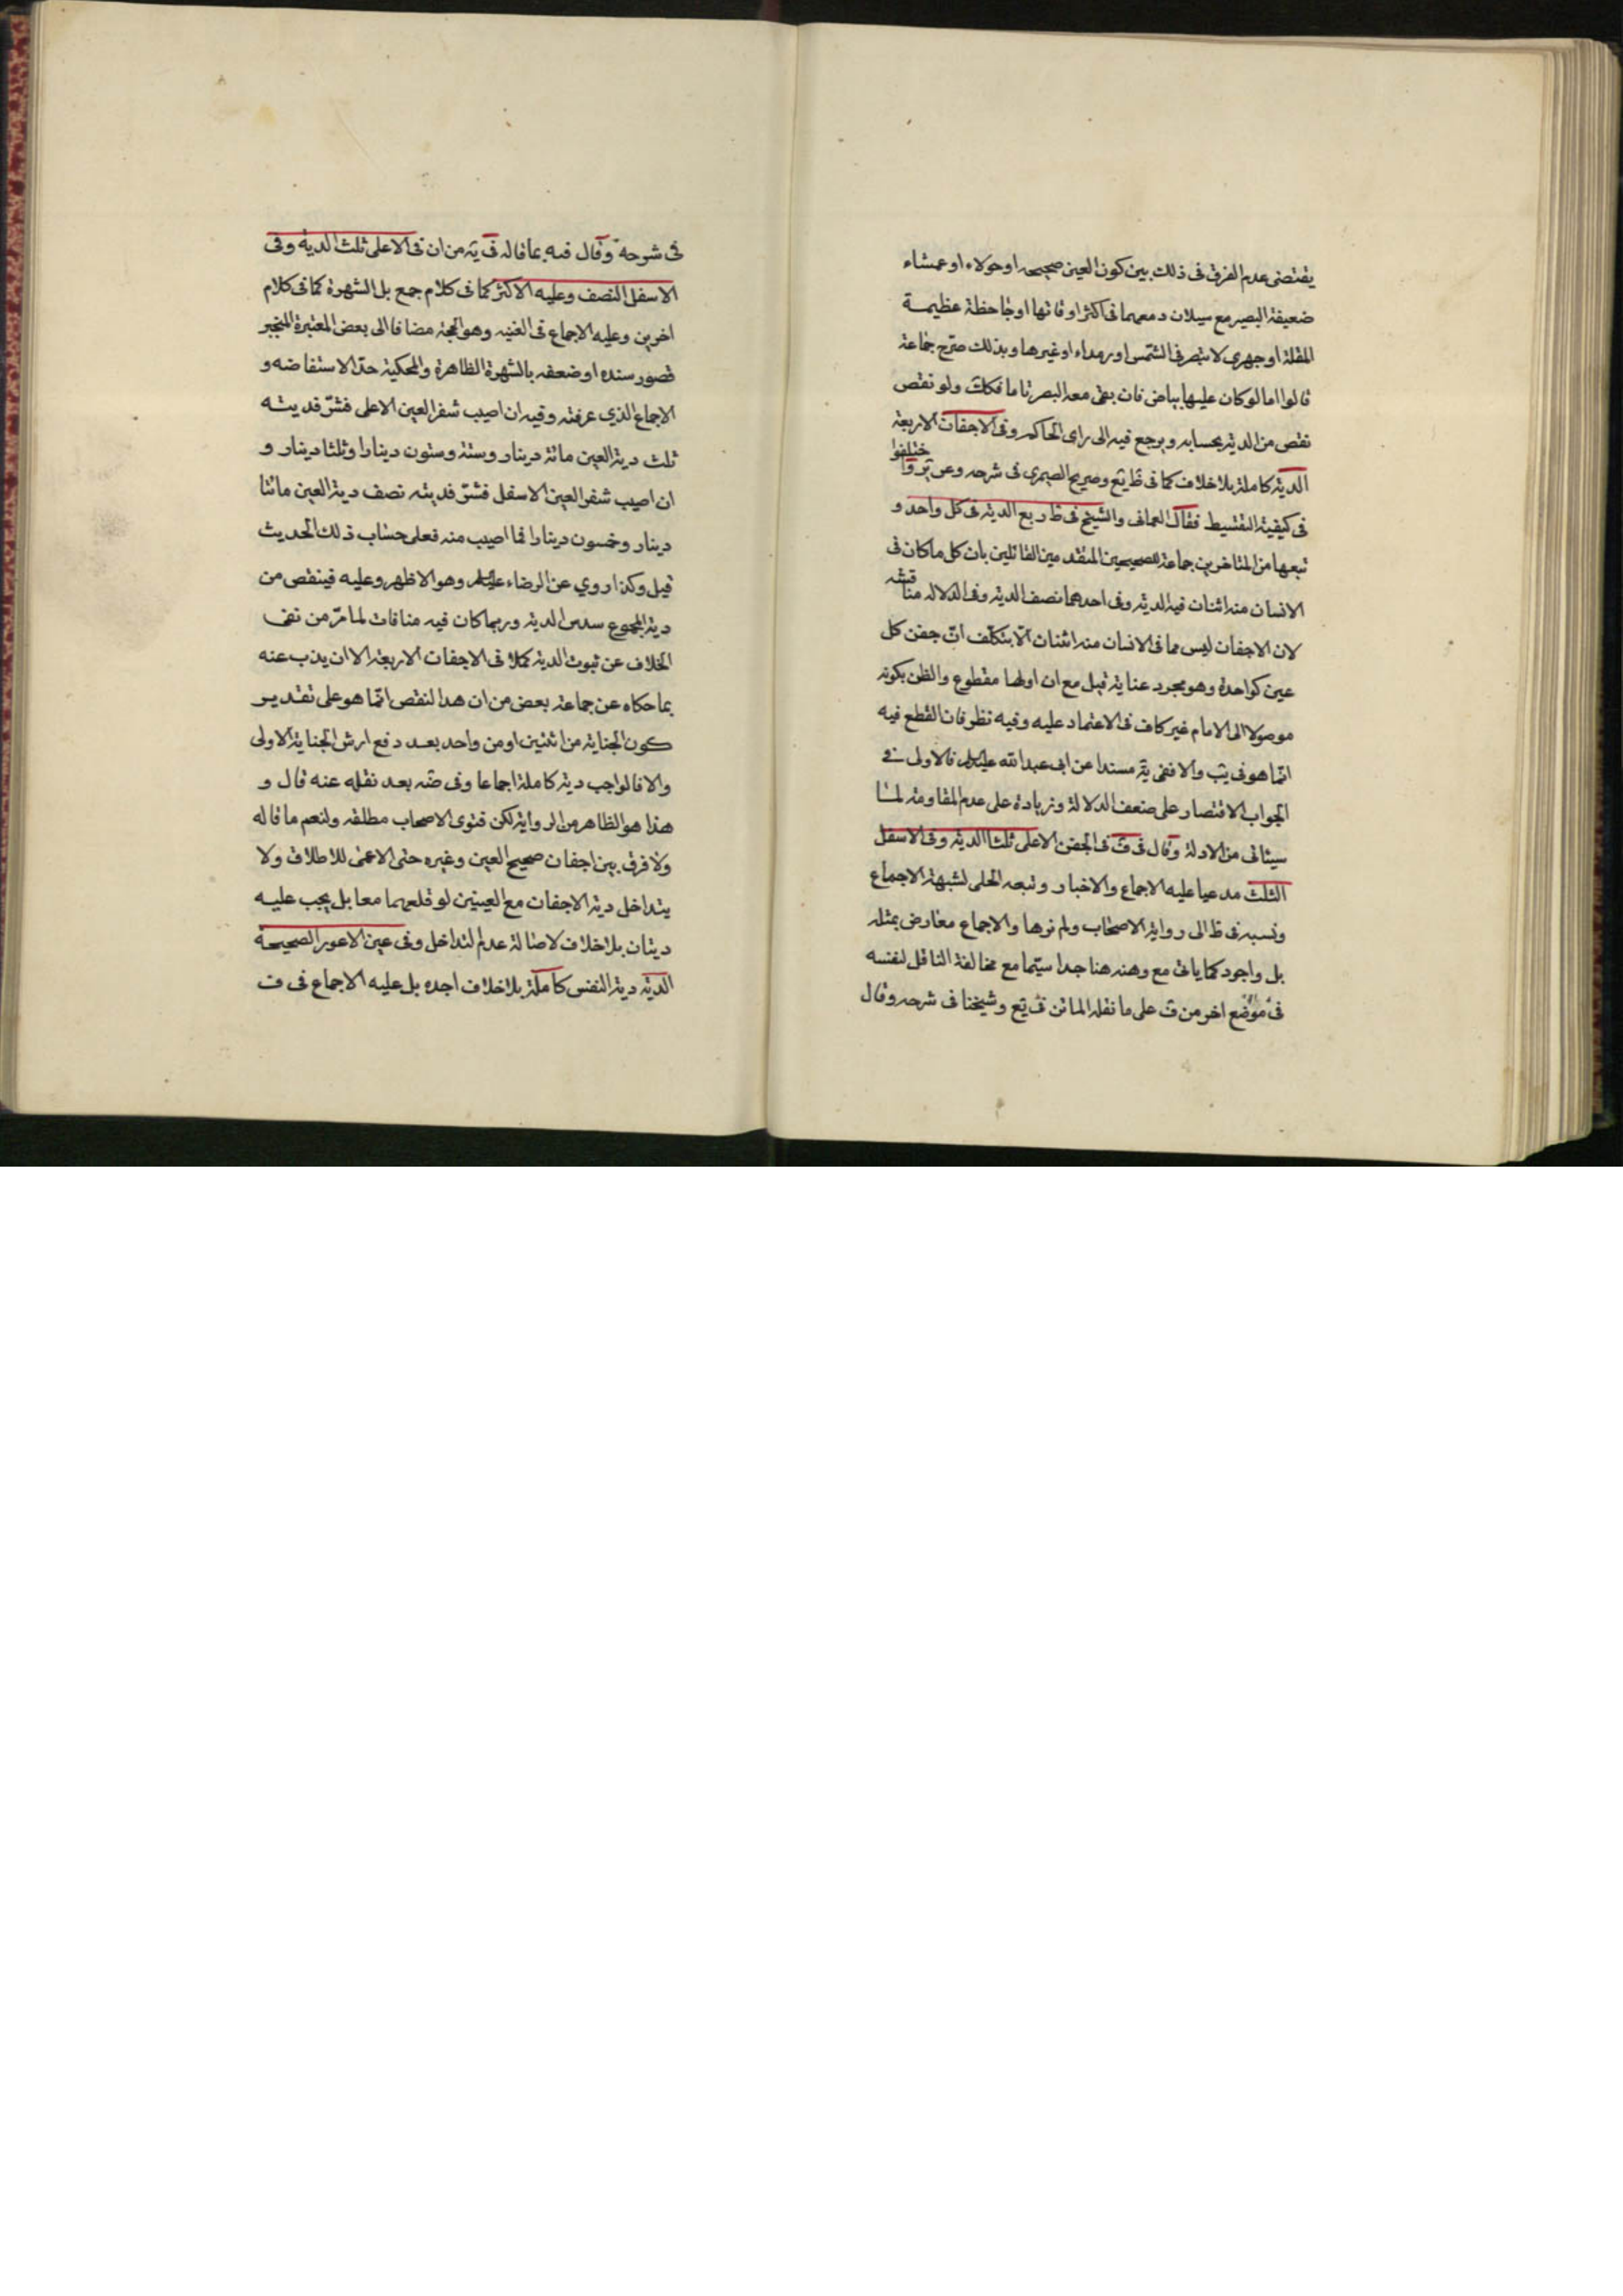 يقتضى عدم الفرق فى ذلك بين كون العين صحيحه او حولاء او عمشاء
ضعيفة البصر مع سيلان دمعهما فى اكثر اوقاتها او جاحظة عظيمة
المقلة او جهرى لا تبصر فى الشمس او رمداء او غيرها وبذلك صرح جماعة
قالوا اما لو كان عليها بياض فان بقى معه البصر تاما فكك ولو نقص
نقص من الدية بحسابه ويرجع فيه الى راى الحاكم وفى الاجفان الاربعة
الدية كاملة بلا خلاف كما فى ظ يع وصريح الصيمرى فى شرحه وعن ير وا ختلفوا
فى كيفية التقسيط فقال العمانى والشيخ فى ط ربع الدية فى كل واحد و
تبعهما من المتاخرين جماعة للصحيحين المتقدمين القائلين بان كل ما كان فى
الانسان منه اثنان فيه الدية وفى احدهما نصف الدية وفى الدلاله مناقشه
لان الاجفان ليس مما فى الانسان منه اثنان الا بتكلف ان جفن كل
عين كواحدة وهو مجرد عناية قيل مع ان اولهما مقطوع والظن بكونه
موصولا الى الامام غير كاف فى الاعتماد عليه وفيه نظر فان القطع فيه
انما هو فى يب والا ففى يه مسندا عن ابى عبد الله عليه السلم فالاولى فى
الجواب الاقتصار على ضعف الدلالة وزيادة على عدم المقاومة لما
سيئاتى من الادلة وقال فى ف فى الجفن الاعلى ثلثا الدية وفى الاسفل
الثلث مدعيا عليه الاجماع والاخبار وتبعه الحلى لشبهة الاجماع
ونسبه فى ط الى رواية الاصحاب ولم نرها والاجماع معارض بمثله
بل واجود كما ياتى مع وهنه هنا جدا سيما مع مخالفة الناقل لنفسه
فى موضع اخر من ف على ما نقله الماتن فى يع وشيخنا فى شرحه وقال
فى شرحه وقال فيه بما قاله فى يه من ان فى الاعلى ثلث الدية وفى
الاسفل النصف وعليه الاكثر كما فى كلام جمع بل الشهرة كما فى كلام
اخرين وعليه الاجماع فى الغنيه وهو الحجة مضافا الى بعض المعتبرة المنجبر
قصور سنده او ضعفه بالشهرة الظاهرة والمحكية حد الاستفاضه و
الاجماع الذى عرفته وفيه ان اصيب شفر العين الاعلى فشتر فديته
ثلث دية العين مائة دينار وستة وستون دينارا وثلثا دينار و
ان اصيب شفر العين الاسفل فشتر فديته نصف دية العين مائتا
دينار وخمسون دينارا فما اصيب منه فعلى حساب ذلك الحديث
قيل وكذا روي عن الرضاء عليه السلم وهو الاظهر وعليه فينقص من
دية المجموع سدس الدية وربما كان فيه منافات لما مر من نفى
الخلاف عن ثبوت الدية كملا فى الاجفان الاربعة الا ان يذب عنه
بما حكاه عن جماعة بعض من ان هذا النقص انما هو على تقدير
كون الجناية من اثنين او من واحد بعد دفع ارش الجناية الاولى
والا فالواجب دية كاملة اجماعا وفى ضه بعد نقله عنه قال و
هذا هو الظاهر من الرواية لكن فتوى الاصحاب مطلقه ولنعم ما قاله
ولا فرق بين اجفان صحيح العين وغيره حتى الاعمى للاطلاق ولا
يتداخل دية الاجفان مع العينين لو قلعهما معا بل يجب عليه
ديتان بلا خلاف لاصالة عدم التداخل وفى عين الاعور الصحيحة
الدية دية النفس كاملة بلا خلاف اجده بل عليه الاجماع فى ف